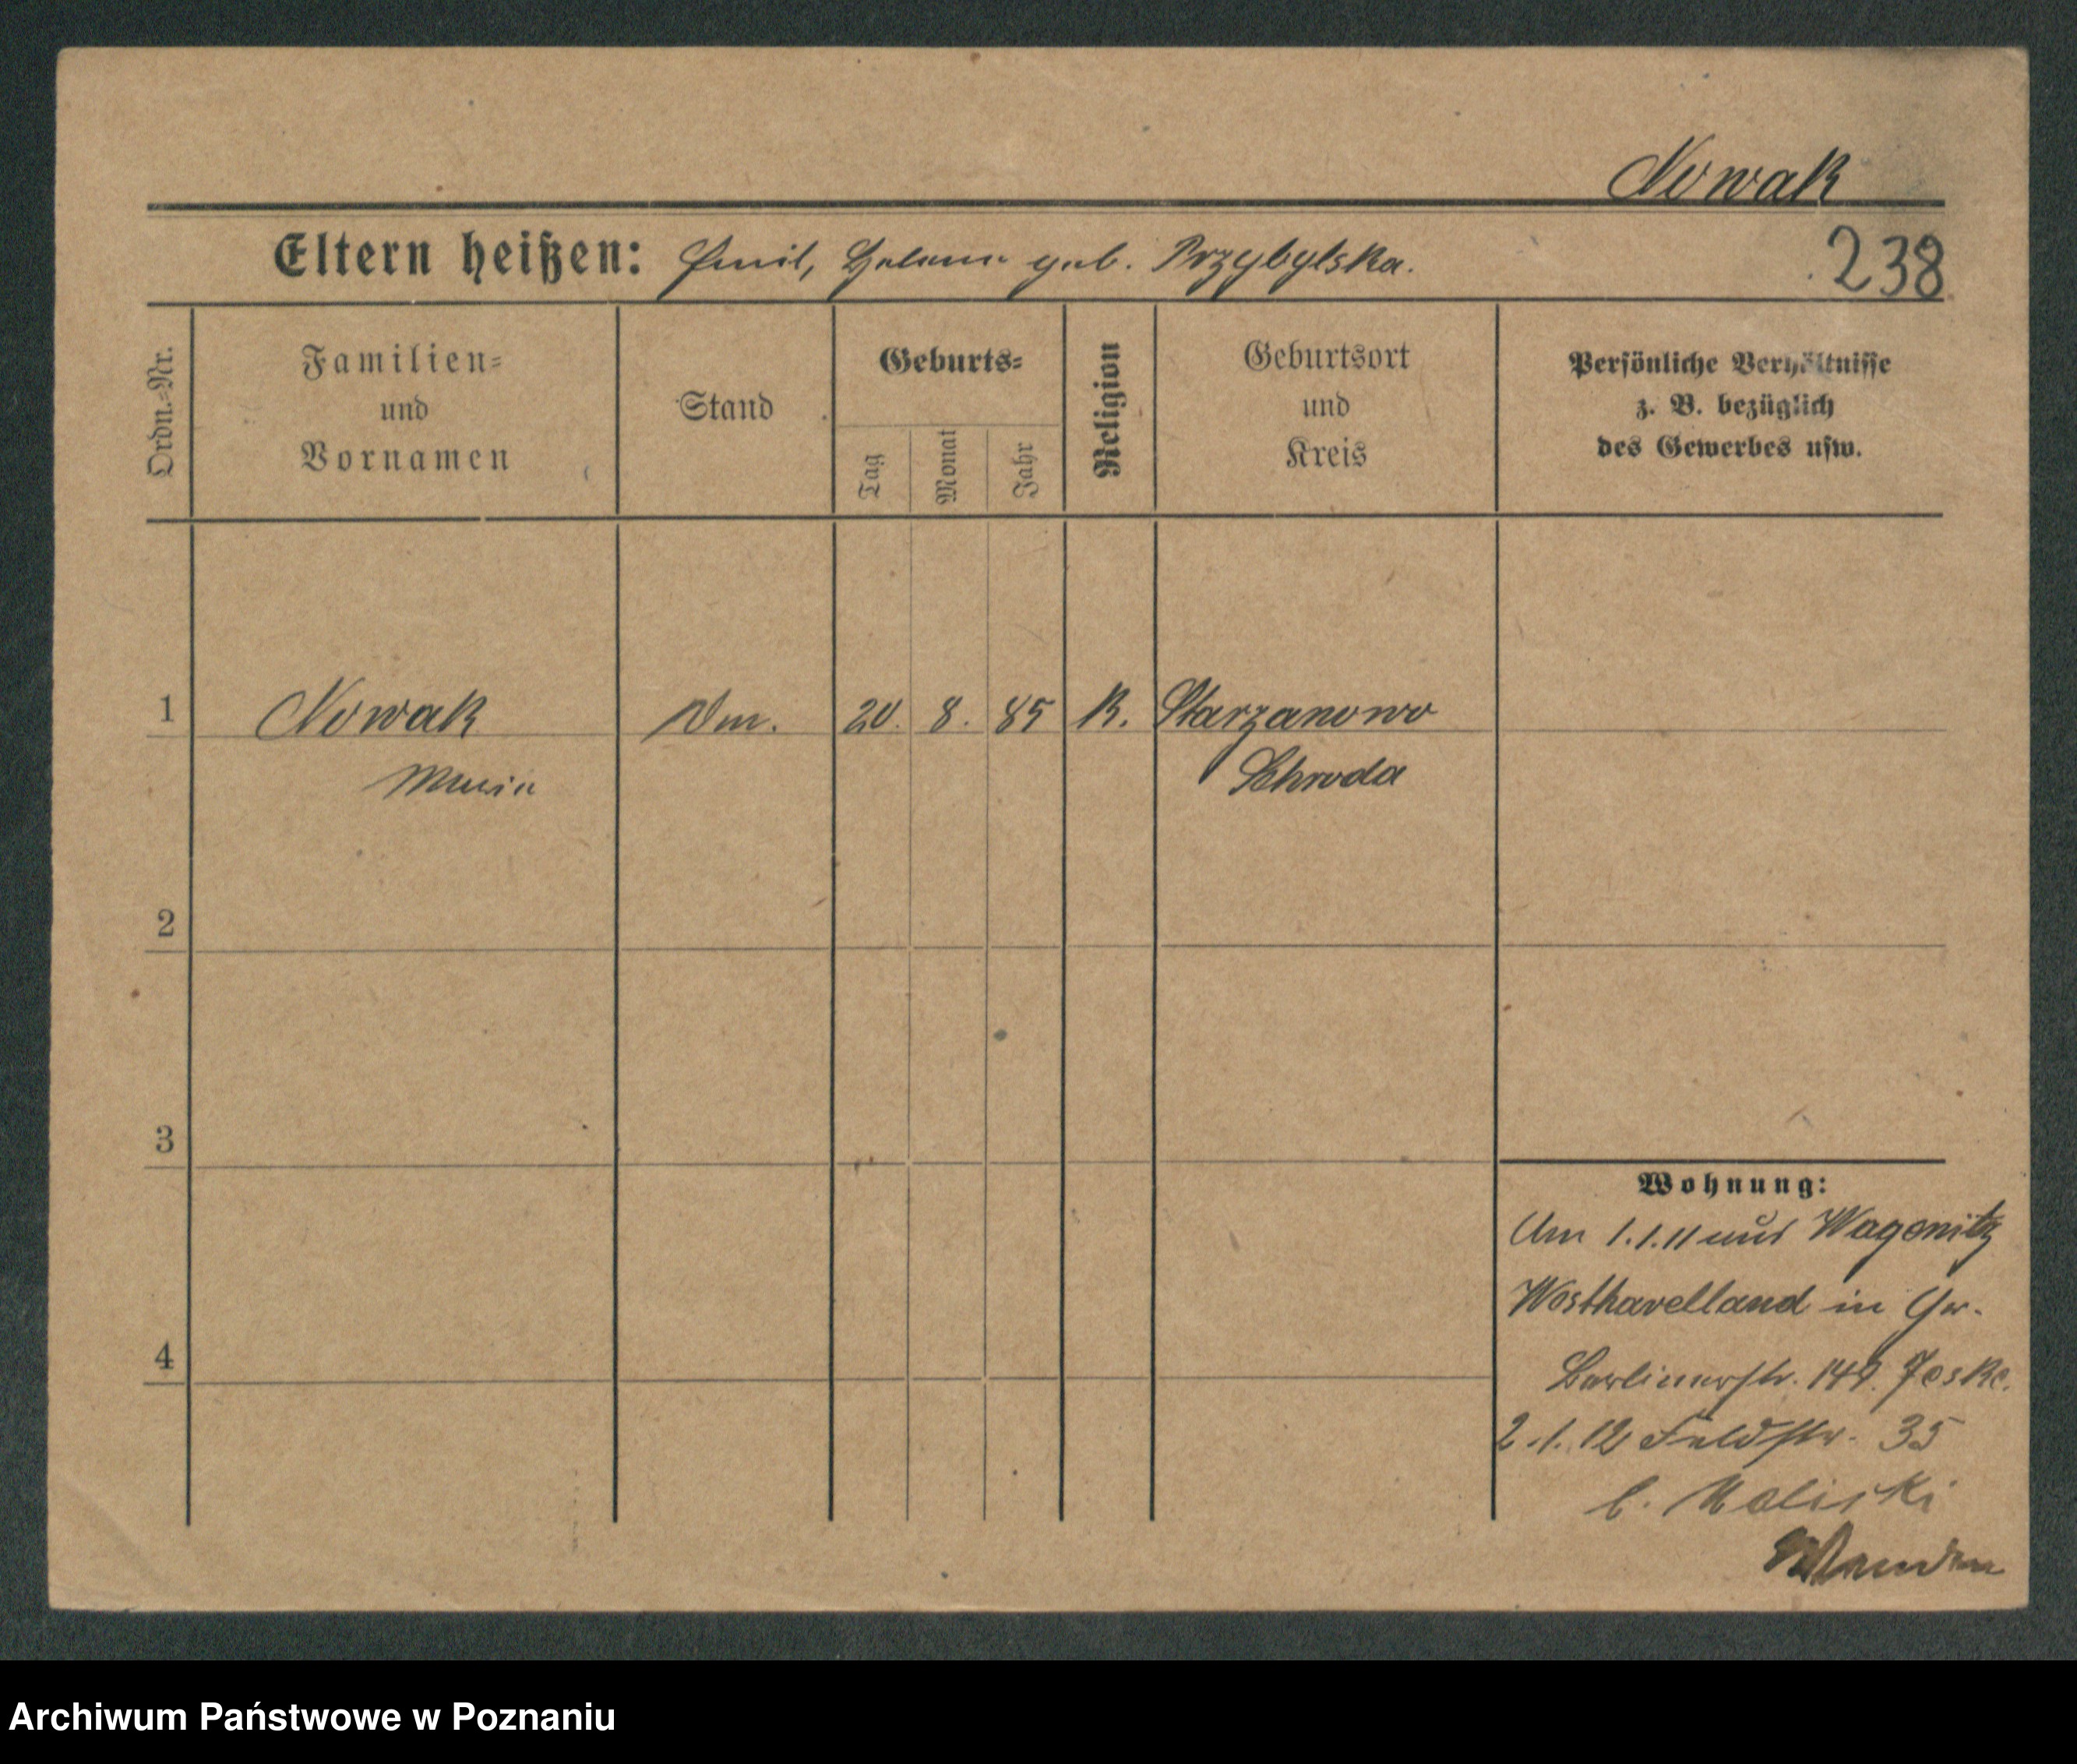 Nowak
Eltern heißen: Emil, Helene geb. Przybylska.
238
Ordn.=Nr.
Familien=
und
Vornamen
Stand
Geburts=
Tag
Monat
Jahr
Religion
Geburtsort
und
Kreis
Persönliche Verhältnisse
z. B. bezüglich
des Gewerbes usw.
1 Nowak 20. 8. 85 K. Starzanowo
Maria Schroda
2
3
4
Wohnung:
Am 1.1.11 aus Wagenitz
Westhavelland in Gw.
Berlinerstr. 149. Jeske.
2.1.12 Feldstr. 35
b. Maliski
Archiwum Państwowe w Poznaniu